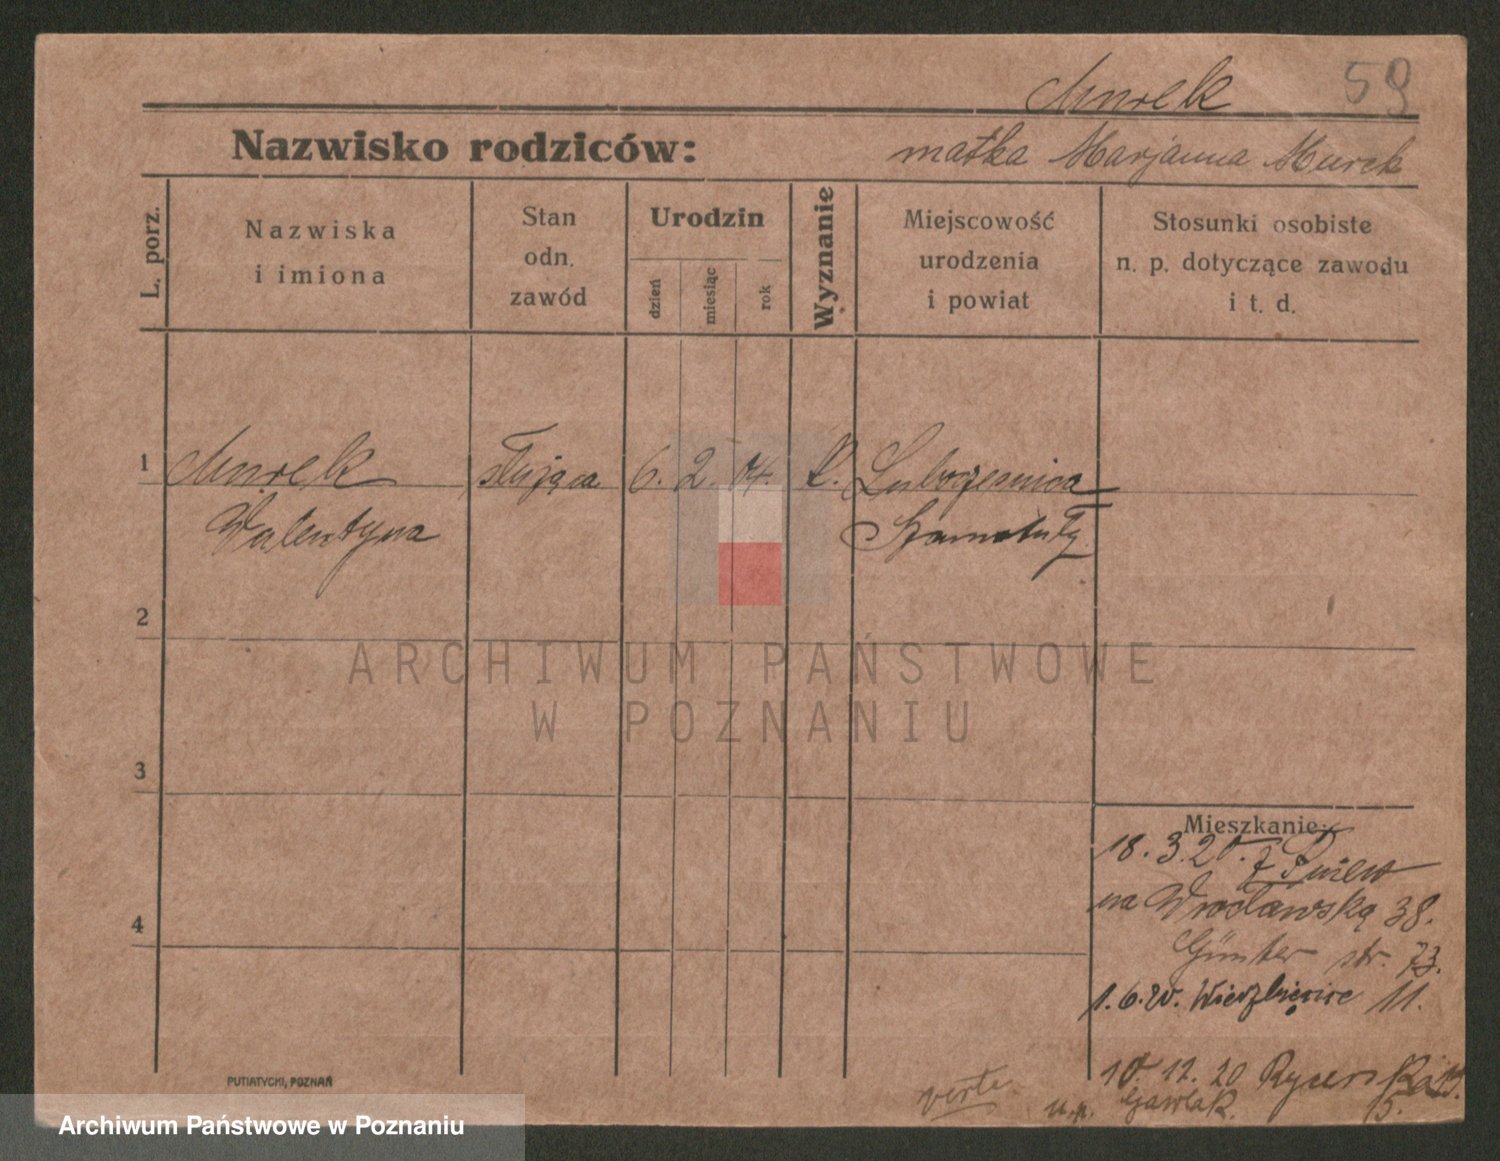 Murek 59
Nazwisko rodziców: matka Marjanna Murek
L. porz.
Nazwiska
i imiona
Stan
odn.
zawód
Urodzin
dzień
miesiąc
rok
Wyznanie
Miejscowość
urodzenia
i powiat
Stosunki osobiste
n. p. dotyczące zawodu
i t. d.
1 Murek służąca 6. 2. 04.
Walentyna Szamotuły
2
ARCHIWUM PAŃSTWOWE
W POZNANIU
3
Mieszkanie:
18. 3. 20. z Pniew
na Wrocławską 38.
4
Günter str. 73.
1. 6. 20. 11.
10. 12. 20 Rycerska
u.p. Gawlak. 5.
verte.
PUTIATYCKI, POZNAŃ
Archiwum Państwowe w Poznaniu